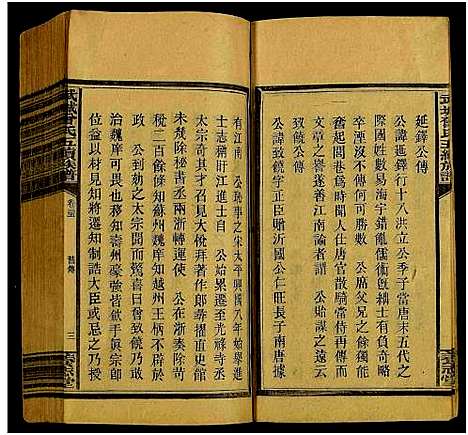 延鐸公傳
公諱延鐸行十八洪立公季子當唐末五代之
際國姓數易海宇錯亂儒術既絀士有負奇略
卒湮沒不傳何可勝數 公席父兄之餘獨能
奮起閭巷爲時聞人仕唐官散騎常侍再傳而
文章之譽遂香江南論者謂 公貽謀之遠云
致饒公傳
公諱致饒字正臣贈沂國公仁旺長子南唐據
有江南 公恥事之宋太平興國八年始舉進
士志稱盱江進士自 公始累遷至光祿寺丞
太宗奇其才召見大悅拜著作郎尋擢直史館
未幾除秘書丞兩浙轉運使 公在浙奏除苛
稅二百餘條知蘇州魏庠知越州王柄不辟於
政 公劾之太宗聞而驚喜曰曾致饒乃敢
治魏庠可畏也移知壽州豪強皆歛手眞宗即
位益以材見知將遷知制誥大臣或忌之乃
武城曾氏五續族譜
卷三
舊傳
三
武城曾氏五續族譜